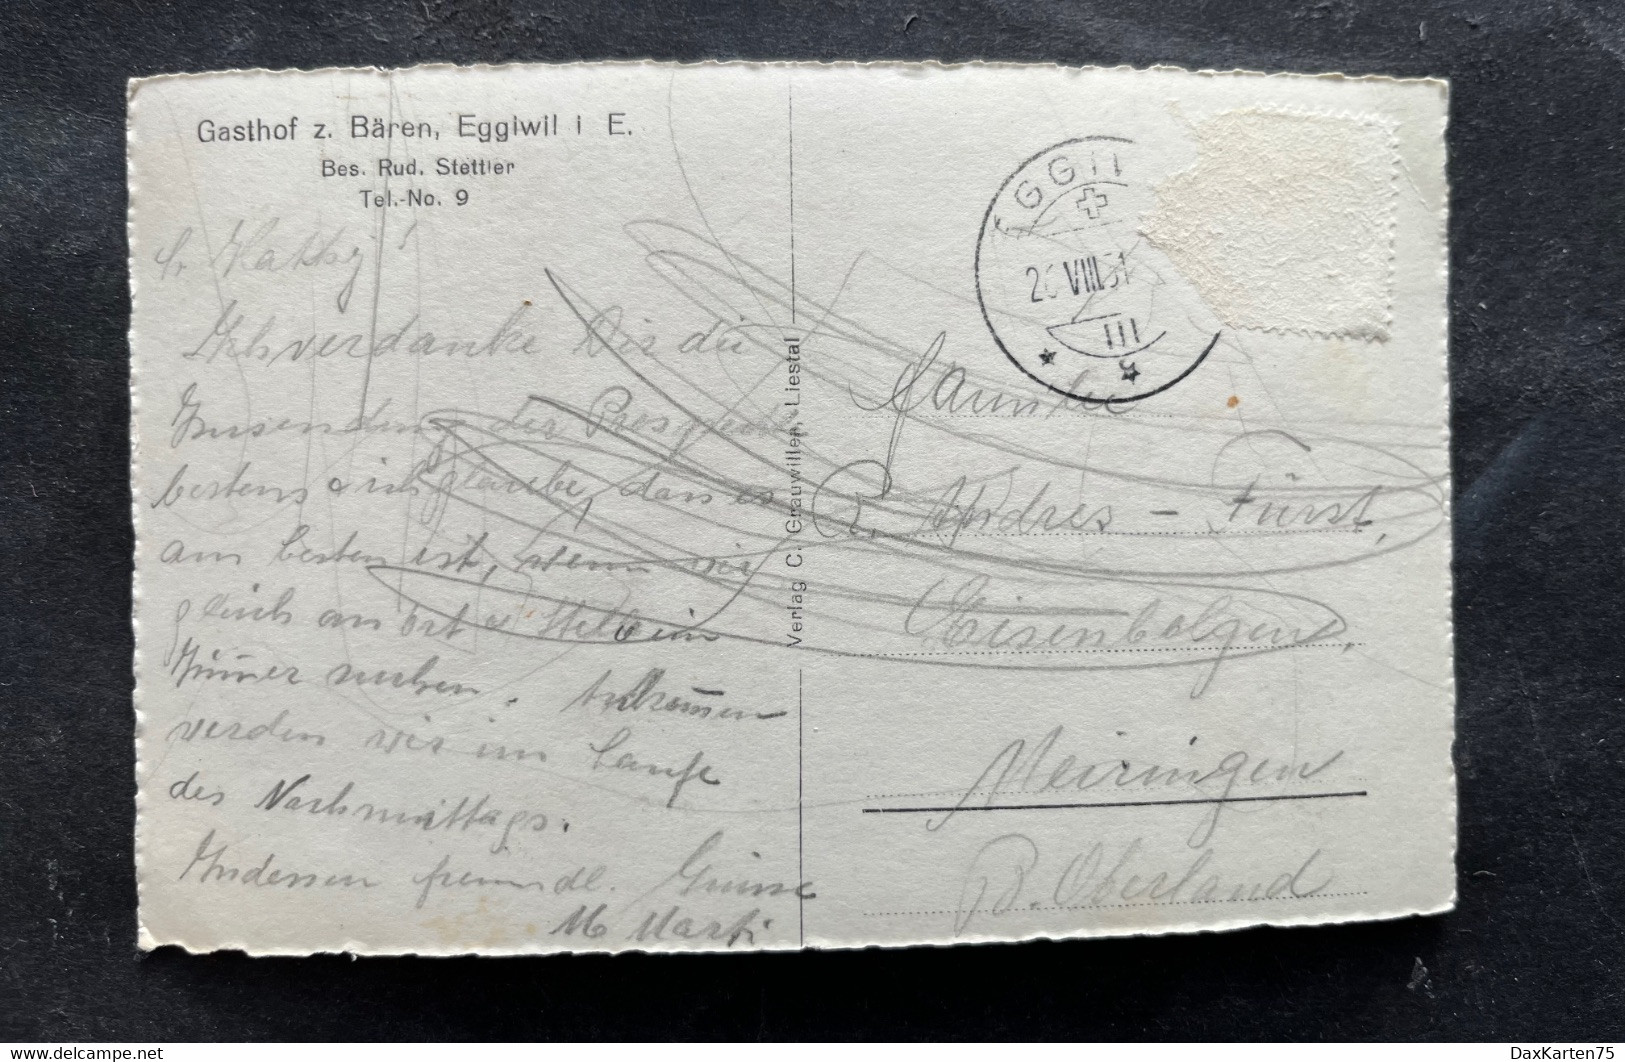 Gasthof z. Bären, Eggiwil i E.
Bes. Rud. Stettler
Tel.-No. 9
Kathy!
Ich verdanke Dir die
Zusendung der Prospekte
bestens & ich glaube, dass es
am besten ist, wenn wir
gleich an Ort & Stelle ein
Zimmer suchen. Ankommen
werden wir im Laufe
des Nachmittags.
Indessen freundl. Grüsse
M. Marti
Verlag C. Grauwiller, Liestal
EGGI
VIII 51
III
Familie
Andres - Fürst,
Eisenbolgen,
Meiringen
B. Oberland
www.delcampe.net
DaxKarten75